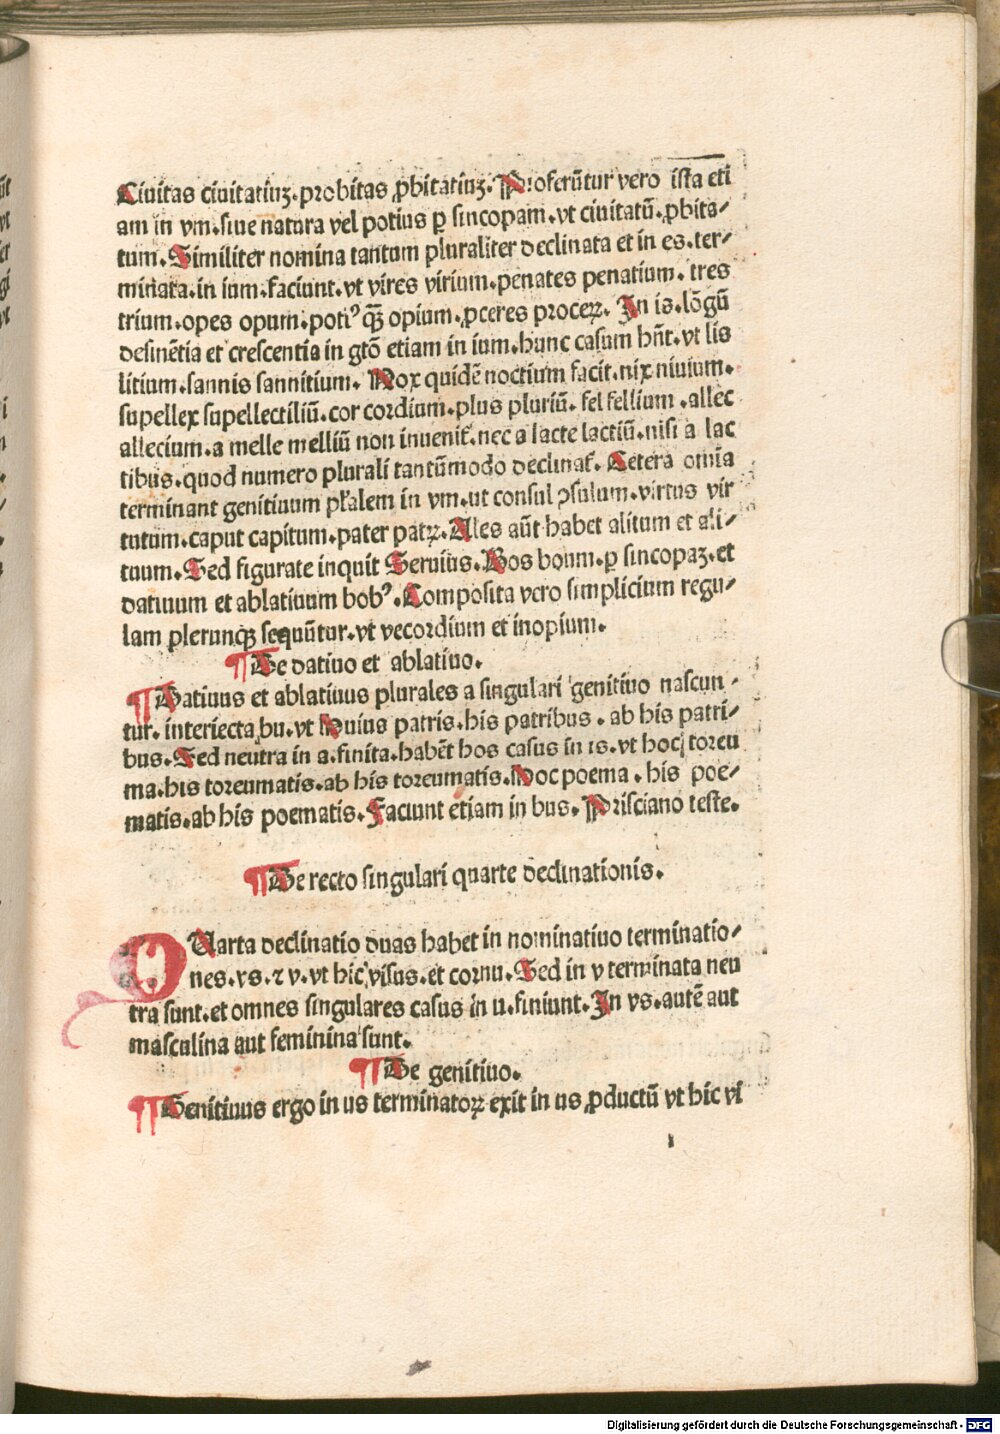 Ciuitas ciuitatiuꝫ.probitas ꝓbitatiuꝫ.Proferūtur vero ista eti
am in vm.siue natura vel potius ꝑ sincopam.vt ciuitatū.ꝓbita/
tum.Similiter nomina tantum pluraliter declinata et in es.ter/
minata.in ium.faciunt.vt vires virium.penates penatium.tres
trium.opes opum.potiꝰ qꝫ̄ opium.ꝓceres proceꝝ.In is.lōgū
desinētia et crescentia in gtō etiam in ium.hunc casum hn̄t.vt lis
litium.sannis sannitium. Nox quidē noctium facit.nix niuium.
supellex supellectiliū.cor cordium.plus pluriū.fel fellium.allec
allecium.a melle melliū non inuenit̄.nec a lacte lactiū.nisi a lac
tibus.quod numero plurali tantūmodo declinat̄.Cetera omīa
terminant genitiuum pl̄alem in vm.ut consul ꝯsulum.virtus vir
tutum.caput capitum.pater patꝝ.Ales aūt habet alitum et ali/
tuum.Sed figurate inquit Seruius.Bos boum.ꝑ sincopaꝫ.et
datiuum et ablatiuum bobꝰ.Composita vero simplicium regu/
lam plerunqꝫ sequūtur.vt vecordium et inopium.
¶De datiuo et ablatiuo.
¶Datiuus et ablatiuus plurales a singulari genitiuo nascun/
tur.interiecta bu.vt Huius patris.his patribus.ab his patri/
bus.Sed neutra in a.finita.habēt hos casus in is.vt hoc toreu
ma.his toreumatis.ab his toreumatis.Hoc poema.his poe/
matis.ab his poematis.Faciunt etiam in bus.Prisciano teste.
¶De recto singulari quarte declinationis.
QUarta declinatio duas habet in nominatiuo terminatio/
nes.vs.ꝛ v.vt hic visus.et cornu.Sed in v terminata neu
tra sunt.et omnes singulares casus in u.finiunt.In vs.autē aut
masculina aut feminina sunt.
¶De genitiuo.
¶Genitiuus ergo in us terminatoꝝ exit in us ꝓductū vt hic vi
Digitalisierung gefördert durch die Deutsche Forschungsgemeinschaft - DFG